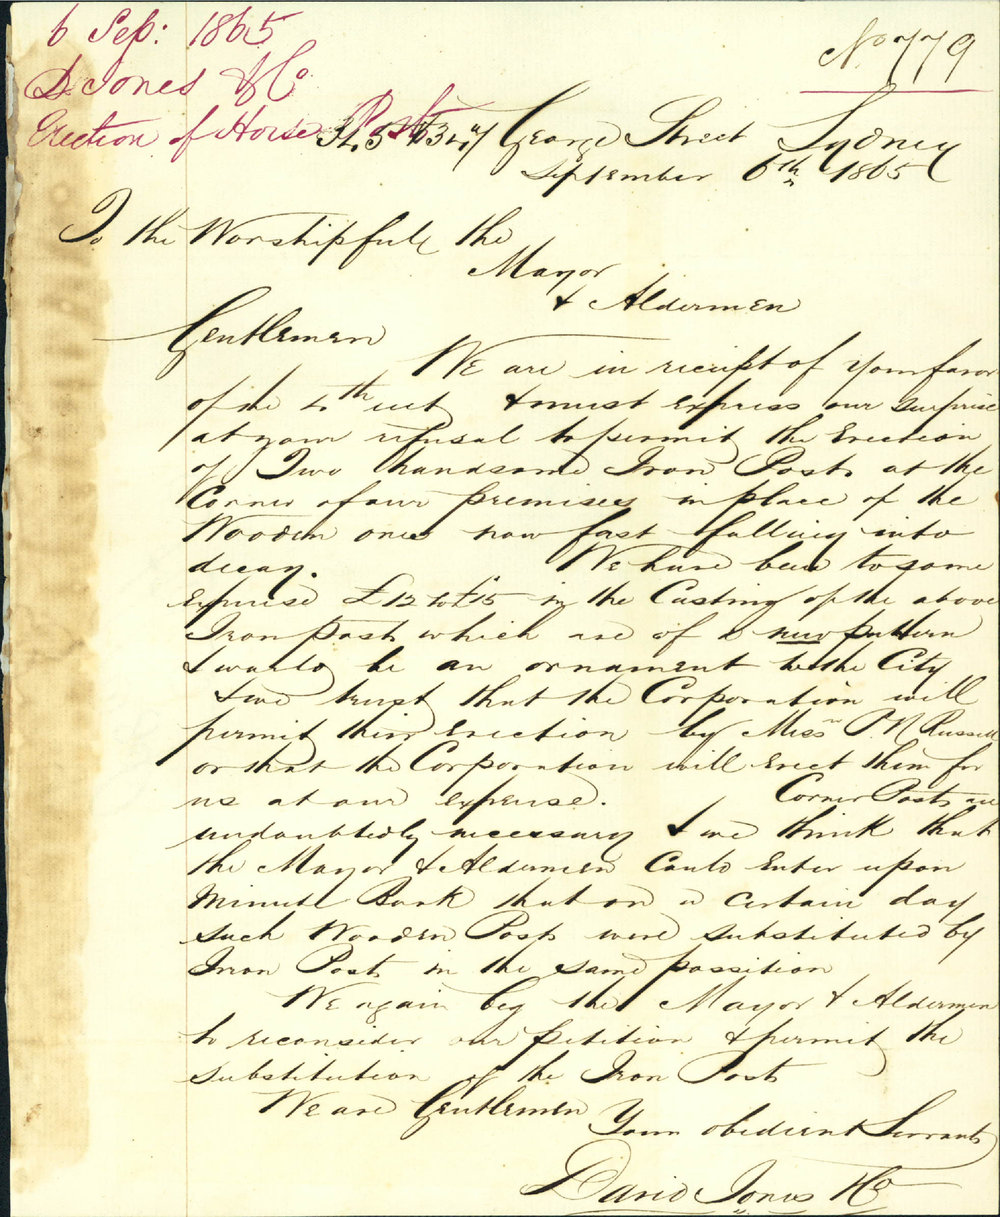 6 Sep: 1865
D Jones & Co
Erection of Horse Posts
No 779
George Street Sydney
September 6th 1865
To the Worshipfull the
Mayor
& Aldermen
Gentlemen
We are in receipt of your favor
of the 4th & must express our surprise
at your refusal to permit the Erection
of Two handsome Iron Posts at the
Corner of our premises in place of the
Wooden ones now fast falling into
decay. We have been to some
Expense £12 to £15 in the Casting of the above
Iron posts which are of a new pattern
& would be an ornament to the City
& we trust that the Corporation will
permit their Erection by Messrs P. N Russell
or that the Corporation will Erect them for
us at our expense. Corner Posts are
undoubtedly necessary & we think that
the Mayor & Aldermen Could Enter upon
Minute Book that on a certain day
such Wooden Posts were substituted by
Iron Posts in the same possition
We again beg the Mayor & Aldermen
to reconsider our petition & permit the
substitution of the Iron Posts
We are Gentlemen
Your obedient Servants
David Jones & Co